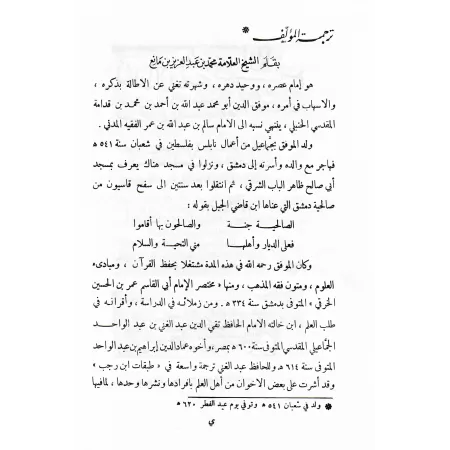 ترجمة المؤلّف *
بقلم الشيخ العلامة محمد بن عبد العزيز بن مانع
هو إمام عصره ، ووحيد دهره ، وشهرته تغني عن الاطالة بذكره ،
والاسهاب في أمره ، موفق الدين أبو محمد عبد الله بن أحمد بن محمد بن قدامة
المقدسي الحنبلي ، ينتهي نسبه الى الامام سالم بن عبد الله بن عمر الفقيه المدني .
ولد الموفق بجمّاعيل من أعمال نابلس بفلسطين في شعبان سنة ٥٤١ ه
فهاجر مع والده وأسرته إلى دمشق ، ونزلوا في مسجد هناك يعرف بمسجد
أبي صالح ظاهر الباب الشرقي ، ثم انتقلوا بعد سنتين الى سفح قاسيون من
صالحية دمشق التي عناها ابن قاضي الجبل بقوله :
الصالحيـة جنـة والصالحون بها أقاموا
فعلى الديار وأهلهـا مني التحية والسلام
وكان الموفق رحمه الله في هذه المدة مشتغلا بحفظ القرآن ، ومبادىء
العلوم ، ومتون فقه المذهب ، ومنها « مختصر الإمام أبي القاسم عمر بن الحسين
الخرقي » المتوفى بدمشق سنة ٣٣٤ ه . ومن زملائه في الدراسة ، وأقرانه في
طلب العلم ، ابن خالته الامام الحافظ تقي الدين عبد الغني بن عبد الواحد
الجمّاعيلي المقدسي المتوفى سنة ٦٠٠ ه بمصر ، وأخوه عماد الدين إبراهيم بن عبد الواحد
المتوفى سنة ٦١٤ ه وللحافظ عبد الغني ترجمة واسعة في « طبقات ابن رجب »
وقد أشرت على بعض الاخوان من أهل العلم بافرادها ونشرها وحدها ، لمافيها
* ولد في شعبان ٥٤١ ه وتوفي يوم عيد الفطر ٦٢٠ ه
ي